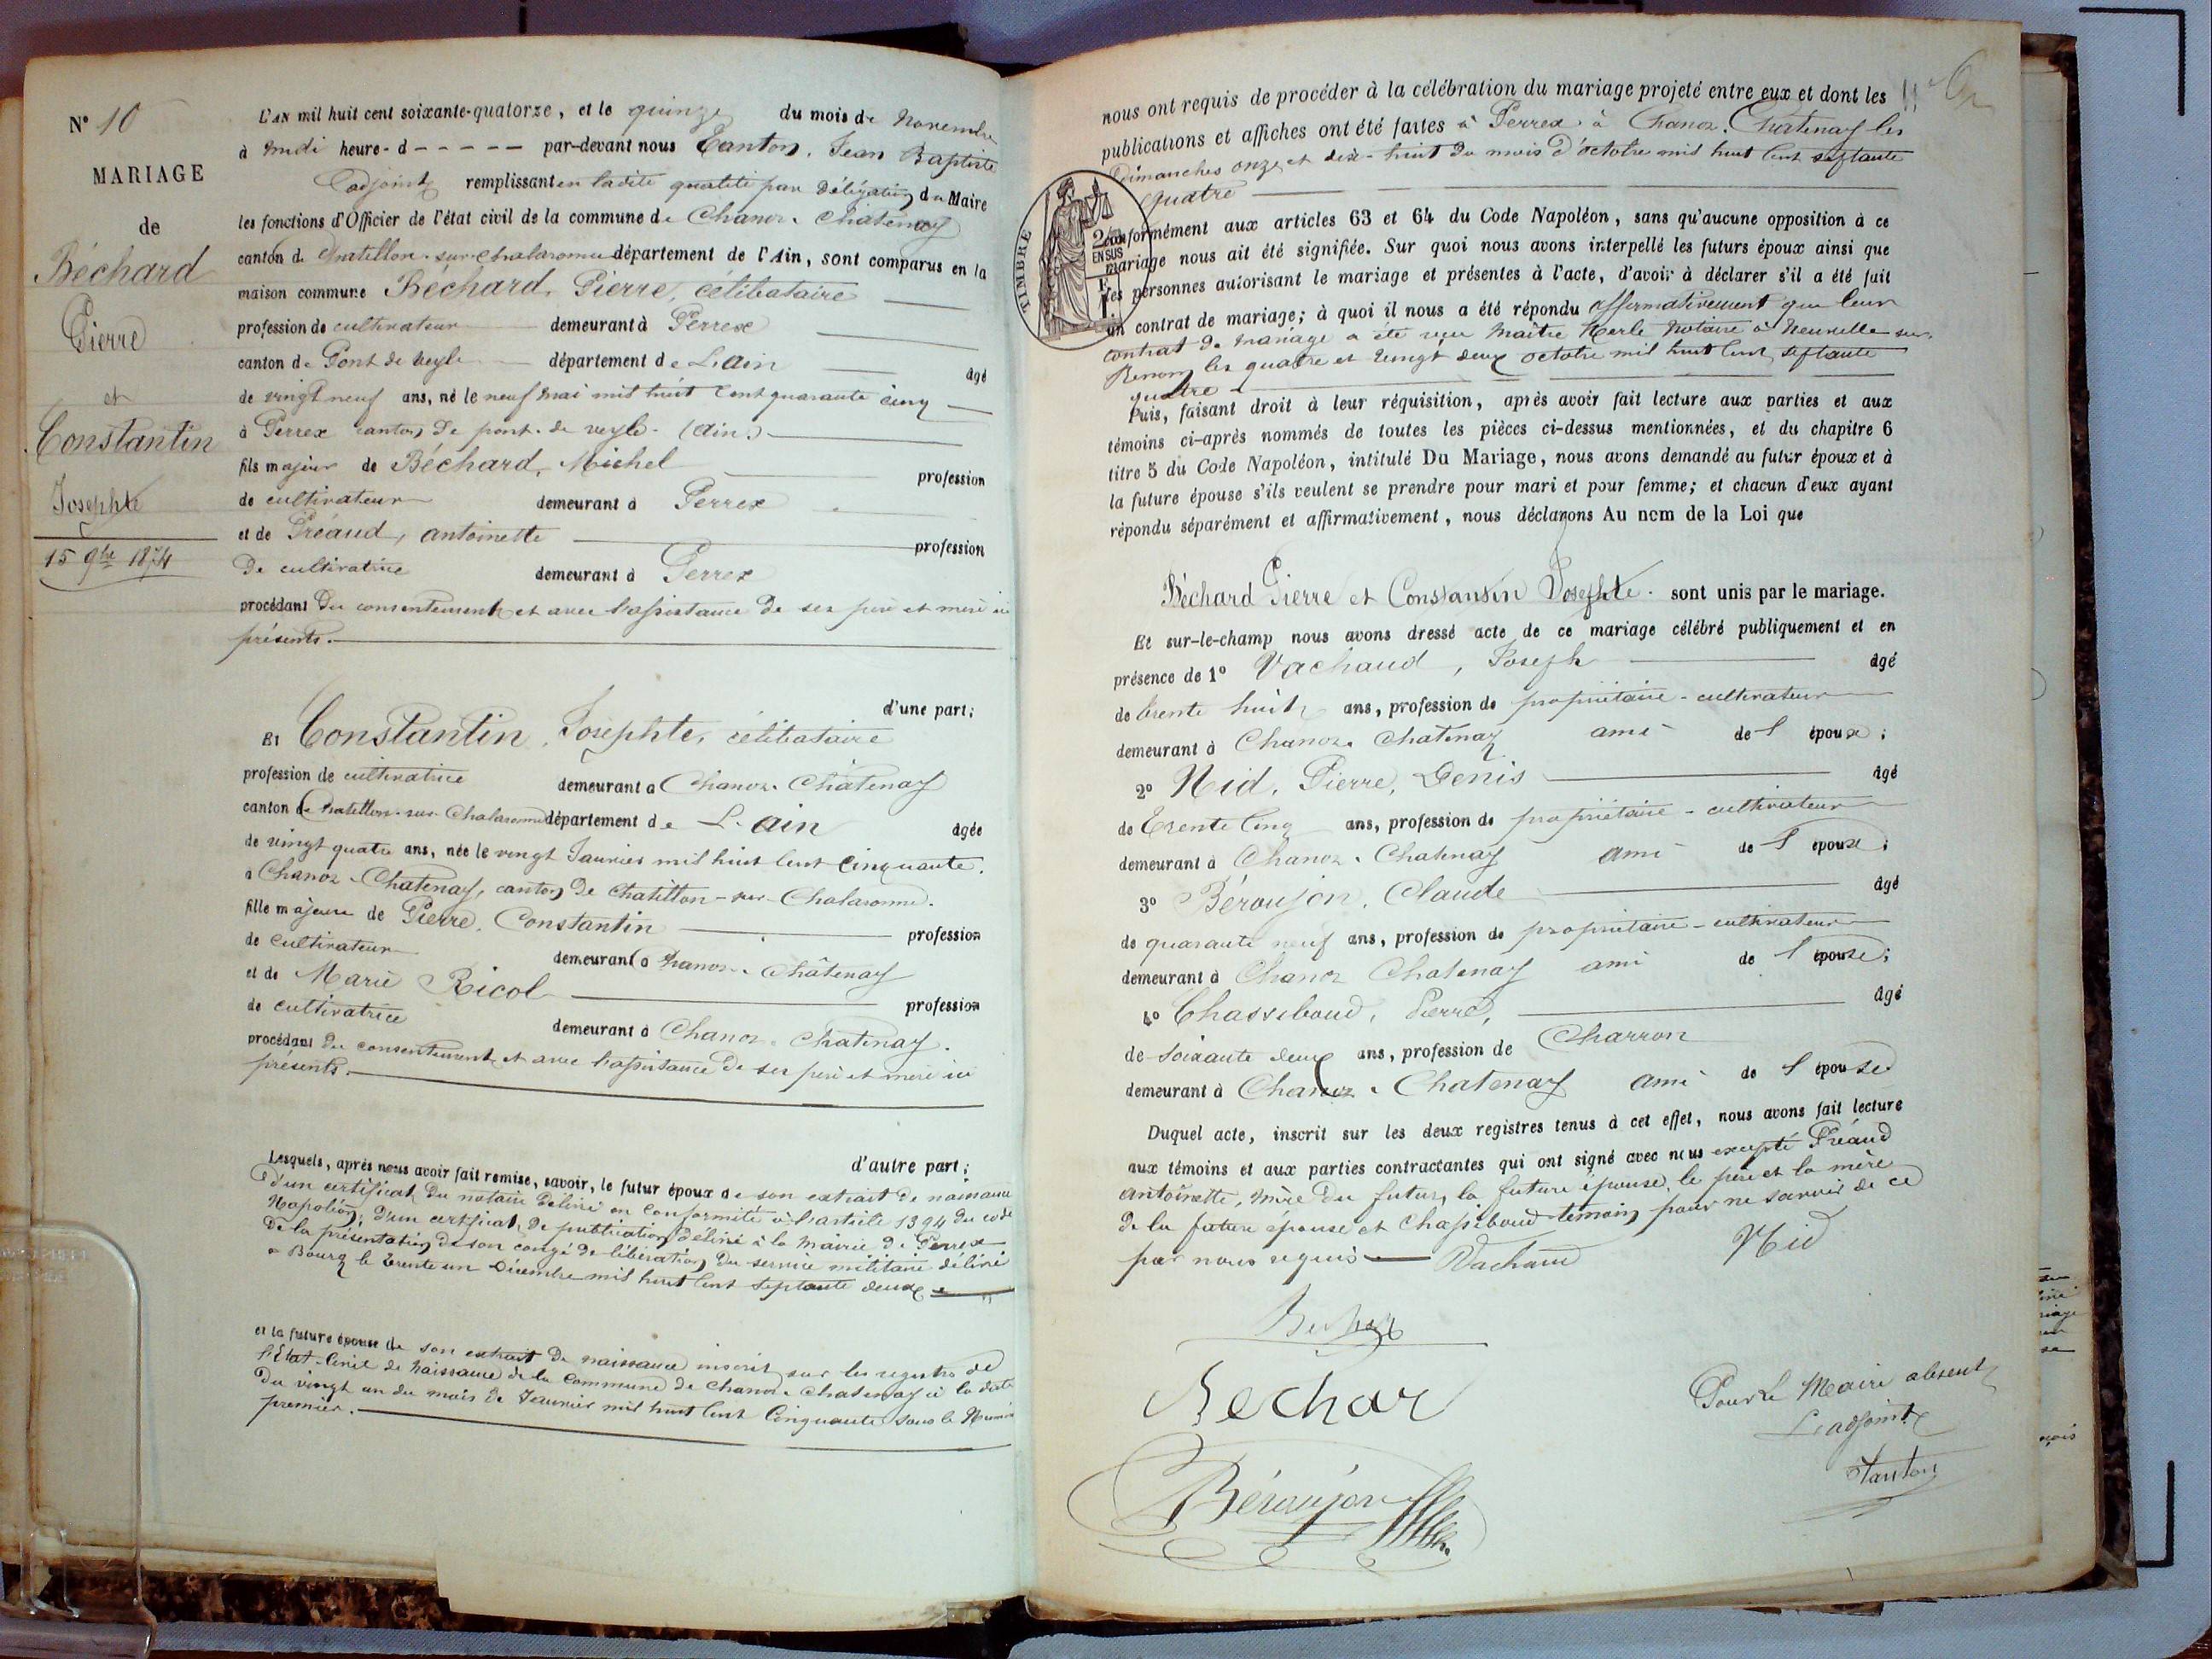 N° 10
MARIAGE
de
Béchard
Pierre
et
Constantin
Josephte
15 9bre 1874
L'AN mil huit cent soixante-quatorze, et le quinze du mois de Novembre
à midi heure- d - - - - - par-devant nous Tanton, Jean Baptiste
adjoint remplissant en ladite qualité par délégation du Maire
les fonctions d'Officier de l'état civil de la commune de Chanoz-Châtenay
canton de Chatillon-sur-Chalaronne département de l'Ain, sont comparus en la
maison commune Béchard, Pierre, célibataire
profession de cultivateur demeurant à Perrex
canton de Pont de veyle département de L'ain âgé
de vingt neuf ans, né le neuf mai mil huit cent quarante cinq
à Perrex canton de pont-de veyle- (Ain)
fils majeur de Béchard, Michel profession
de cultivateur demeurant à Perrex
et de Préaud, antoinette profession
De cultivatrice demeurant à Perrex
procédant du consentement et avec l'assistance de ses père et mère ici
présents.
d'une part;
Et Constantin, Josephte, célibataire
profession de cultivatrice demeurant à Chanoz-Châtenay
canton de Chatillon-sur-Chalaronne département de L'ain âgée
de vingt quatre ans, née le vingt Janvier mil huit cent cinquante.
à Chanoz-Chatenay, canton de Chatillon-sur-Chalaronne.
fille majeure de Pierre, Constantin profession
de cultivateur demeurant à Chanoz-Châtenay
et de Marie Ricol profession
de cultivatrice demeurant à Chanoz-Chatenay.
procédant du consentement et avec l'assistance de ses père et mère ici
présents.
d'autre part;
Lesquels, après nous avoir fait remise, savoir, le futur époux de son extrait de naissance
D'un certificat du notaire délivré en conformité à l'article 1394 du code
Napoléon; d'un certificat de publication délivré à la mairie de Perrex
de la présentation de son congé de libération du service militaire délivré
à Bourg le trente un Décembre mil huit cent septante deux
et la future épouse de son extrait de naissance inscrit sur les registres de
l'Etat-Civil de Naissance de la Commune de Chanoz-Chatenay à la date
du vingt un du mois de Janvier mil huit cent Cinquante sous le Numéro
premier.
nous ont requis de procéder à la célébration du mariage projeté entre eux et dont les
publications et affiches ont été faites à Perrex à Chanoz-Chatenay les
Dimanches onze et dix-huit du mois d'octobre mil huit cent septante
quatre
TIMBRE
2/10
EN SUS
conformément aux articles 63 et 64 du Code Napoléon, sans qu'aucune opposition à ce
mariage nous ait été signifiée. Sur quoi nous avons interpellé les futurs époux ainsi que
les personnes autorisant le mariage et présentes à l'acte, d'avoir à déclarer s'il a été fait
un contrat de mariage; à quoi il nous a été répondu affirmativement que leur
contrat de mariage a été reçu Maître Merle Notaire à Neuville sur
Renon les quatre et vingt deux octobre mil huit cent septante
quatre
Puis, faisant droit à leur réquisition, après avoir fait lecture aux parties et aux
témoins ci-après nommés de toutes les pièces ci-dessus mentionnées, et du chapitre 6
titre 5 du Code Napoléon, intitulé Du Mariage, nous avons demandé au futur époux et à
la future épouse s'ils veulent se prendre pour mari et pour femme; et chacun d'eux ayant
répondu séparément et affirmativement, nous déclarons Au nom de la Loi que
Béchard Pierre et Constantin Josephte sont unis par le mariage.
Et sur-le-champ nous avons dressé acte de ce mariage célébré publiquement et en
présence de 1° Vachaud, Joseph âgé
de trente huit ans, profession de propriétaire-cultivateur
demeurant à Chanoz-Chatenay ami de l'époux;
2° Nid, Pierre, Denis âgé
de trente cinq ans, profession de propriétaire-cultivateur
demeurant à Chanoz-Chatenay ami de l'époux;
3° Béroujon, Claude âgé
de quarante neuf ans, profession de propriétaire-cultivateur
demeurant à Chanoz Chatenay ami de l'épouse;
4° Chassiboud, Pierre, âgé
de soixante deux ans, profession de Charron
demeurant à Chanoz-Chatenay ami de l'épouse
Duquel acte, inscrit sur les deux registres tenus à cet effet, nous avons fait lecture
aux témoins et aux parties contractantes qui ont signé avec nous excepté Préaud
Antoinette, mère du futur, la future épouse, le père et la mère
de la future épouse et Chassiboud témoin pour ne savoir de ce
par nous requis Vachaud Nid
Bechar
Béroujon
Pour Le Maire absent
L'adjoint
Tanton